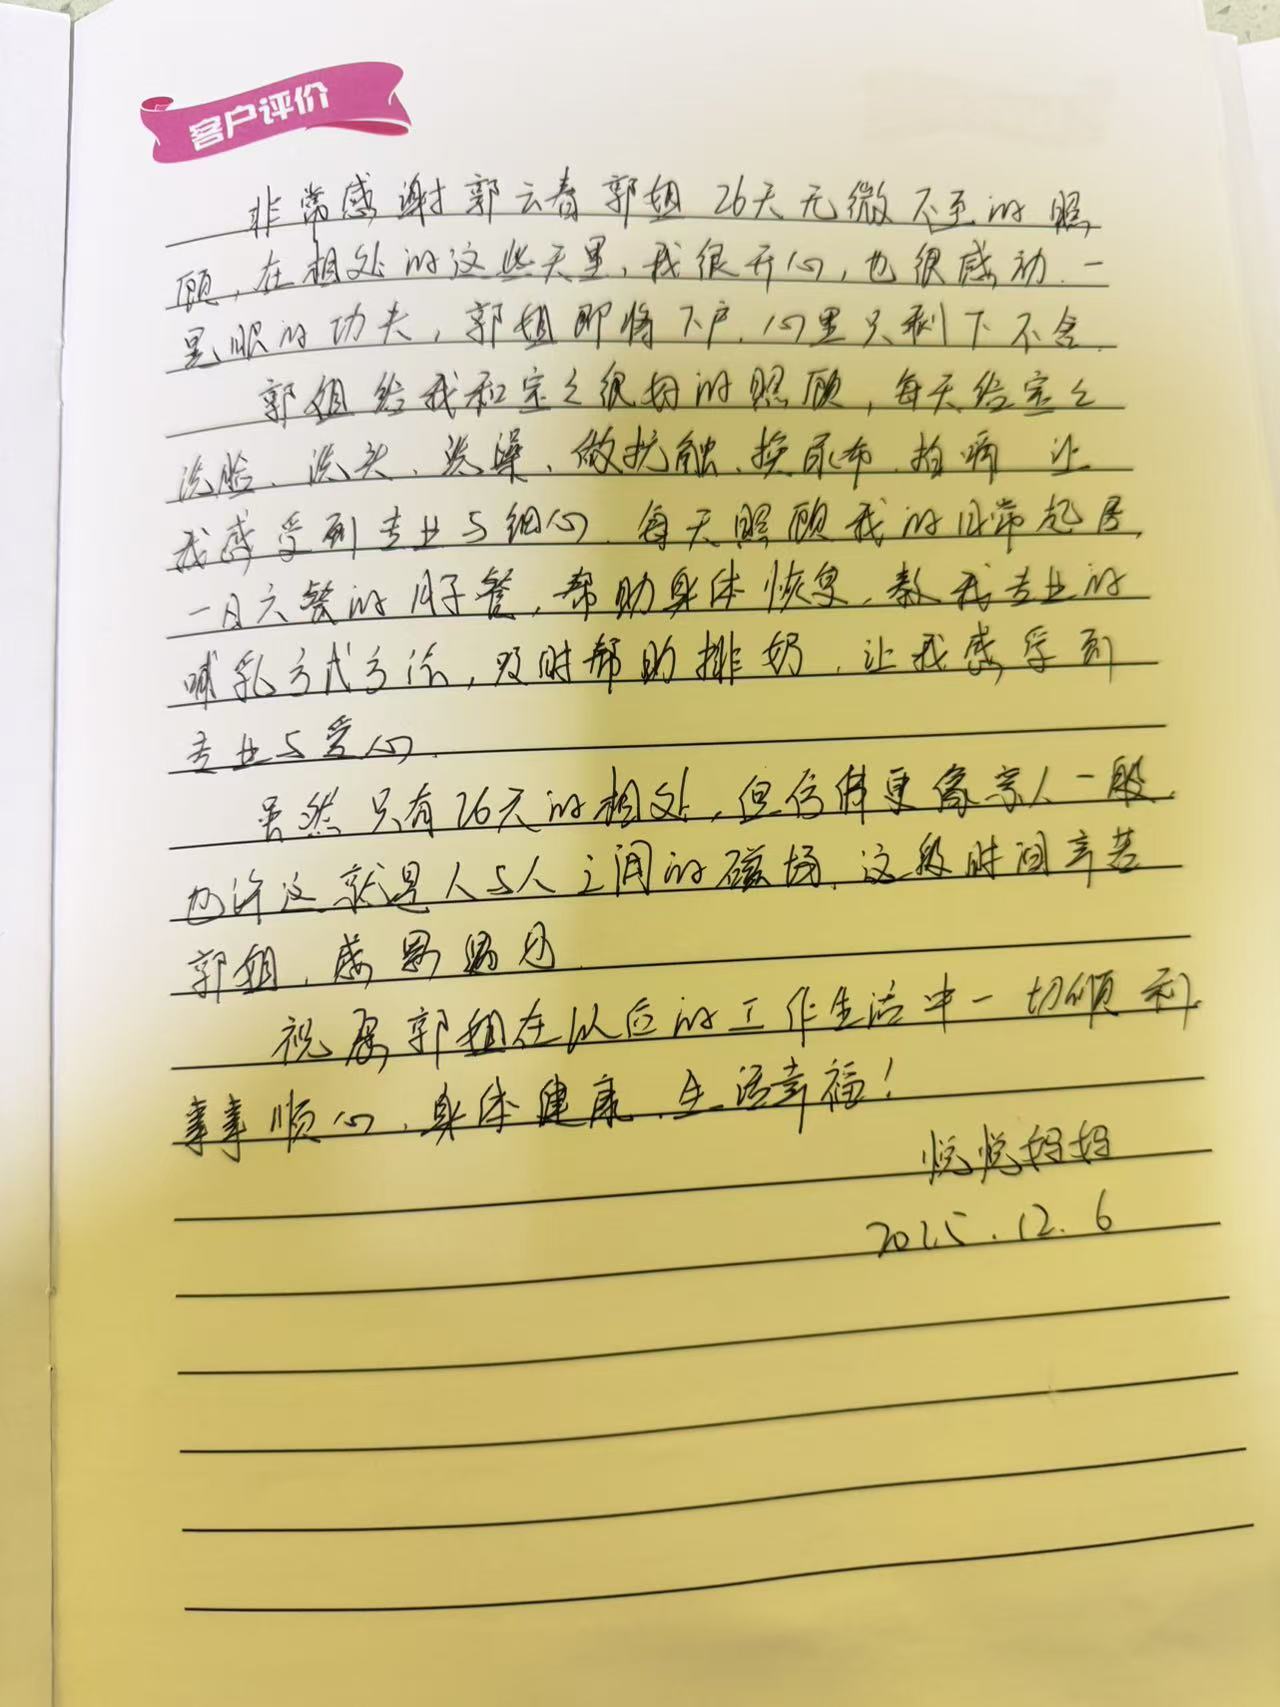 客户评价
非常感谢郭云春郭姐26天无微不至的照
顾,在相处的这些天里,我很开心,也很感动.一
晃眼的功夫,郭姐即将下户.心里只剩下不舍.
郭姐给我和宝宝很好的照顾,每天给宝宝
洗脸、洗头、洗澡、做抚触、换尿布、拍嗝 让
我感受到专业与细心.每天照顾我的日常起居,
一日六餐的月子餐,帮助身体恢复,教我专业的
哺乳方式方法,及时帮助排奶.让我感受到
专业与爱心.
虽然只有26天的相处,但仿佛更像家人一般,
也许这就是人与人之间的磁场.这段时间辛苦
郭姐,感恩遇见.
祝愿郭姐在以后的工作生活中一切顺利,
事事顺心、身体健康、生活幸福!
悦悦妈妈
2025.12.6